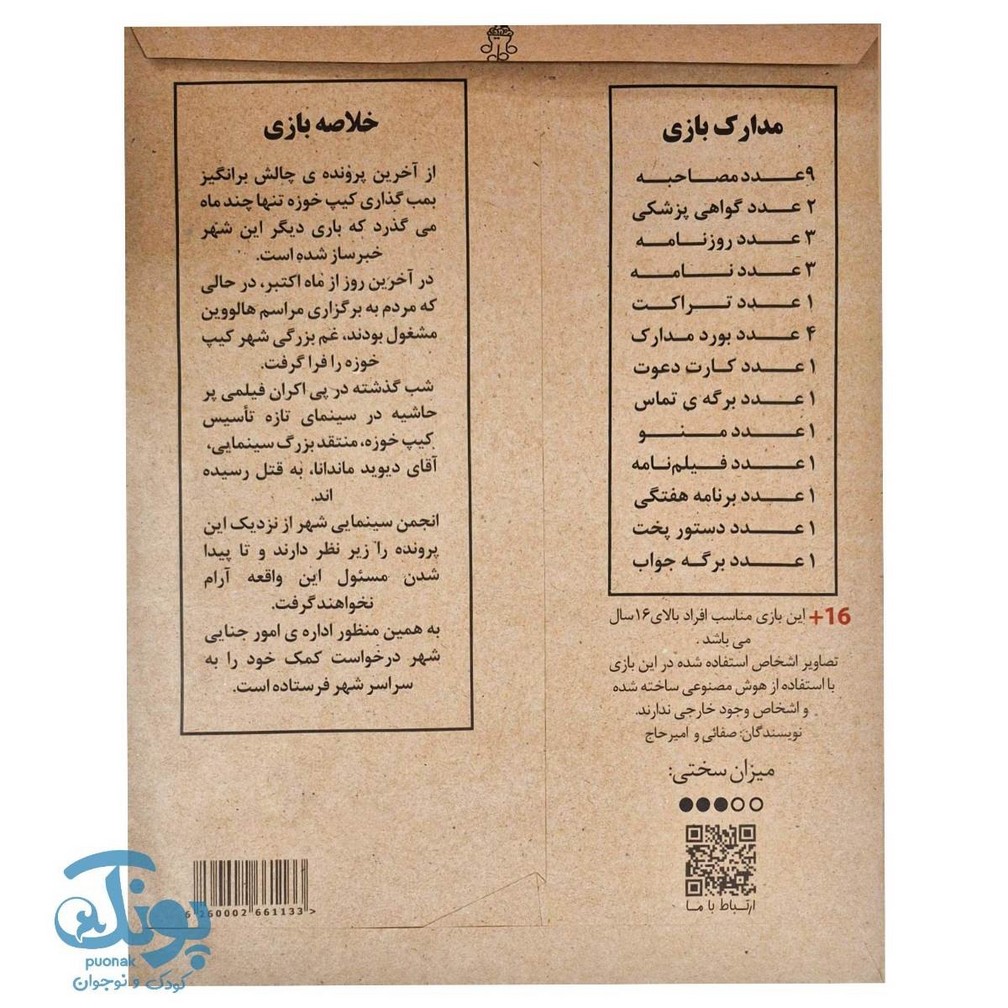 مدارک بازی
۹ عدد مصاحبه
۲ عدد گواهی پزشکی
۳ عدد روزنامه
۳ عدد نامه
۱ عدد تراکت
۴ عدد بورد مدارک
۱ عدد کارت دعوت
۱ عدد برگه ی تماس
۱ عدد منو
۱ عدد فیلم‌نامه
۱ عدد برنامه هفتگی
۱ عدد دستور پخت
۱ عدد برگه جواب
16+ این بازی مناسب افراد بالای ۱۶ سال
می باشد .
تصاویر اشخاص استفاده شده در این بازی
با استفاده از هوش مصنوعی ساخته شده
و اشخاص وجود خارجی ندارند.
نویسندگان: صفائی و امیرحاج
میزان سختی:
ارتباط با ما
خلاصه بازی
از آخرین پرونده ی چالش برانگیز
بمب گذاری کیپ خوزه تنها چند ماه
می گذرد که باری دیگر این شهر
خبرساز شده است.
در آخرین روز از ماه اکتبر، در حالی
که مردم به برگزاری مراسم هالووین
مشغول بودند، غم بزرگی شهر کیپ
خوزه را فرا گرفت.
شب گذشته در پی اکران فیلمی پر
حاشیه در سینمای تازه تأسیس
کیپ خوزه، منتقد بزرگ سینمایی،
آقای دیوید ماندانا، به قتل رسیده
اند.
انجمن سینمایی شهر از نزدیک این
پرونده را زیر نظر دارند و تا پیدا
شدن مسئول این واقعه آرام
نخواهند گرفت.
به همین منظور اداره ی امور جنایی
شهر درخواست کمک خود را به
سراسر شهر فرستاده است.
6 260002 661133 >
پونک
puonak
کودک و نوجوان